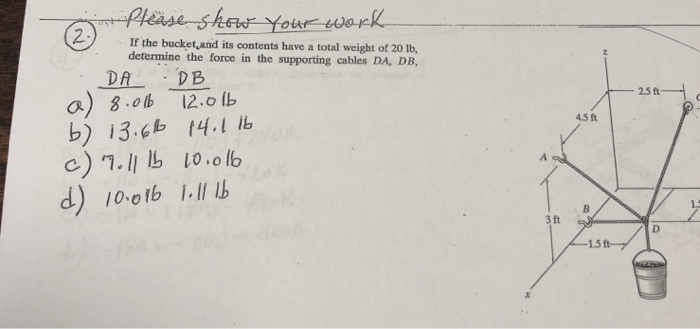 Please show Your work
2.
If the bucket and its contents have a total weight of 20 lb,
determine the force in the supporting cables DA, DB,
DA DB
a) 8.0 lb 12.0 lb
b) 13.6 lb 14.1 lb
c) 7.11 lb 10.0 lb
d) 10.0 lb 1.11 lb
z
2.5 ft
C
4.5 ft
A
3 ft
B
D
1.5 ft
x